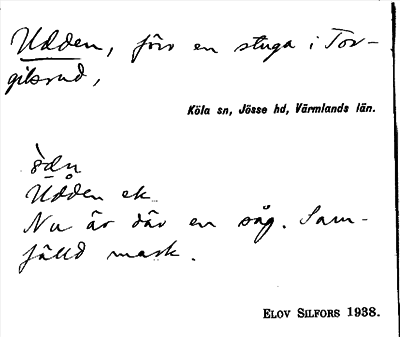 Udden, förv en stuga i Tor-
gilsrud,
Köla sn, Jösse hd, Värmlands län.
Udden ek
Nu är där en såg. Sam-
fälld mark.
ELOV SILFORS 1938.